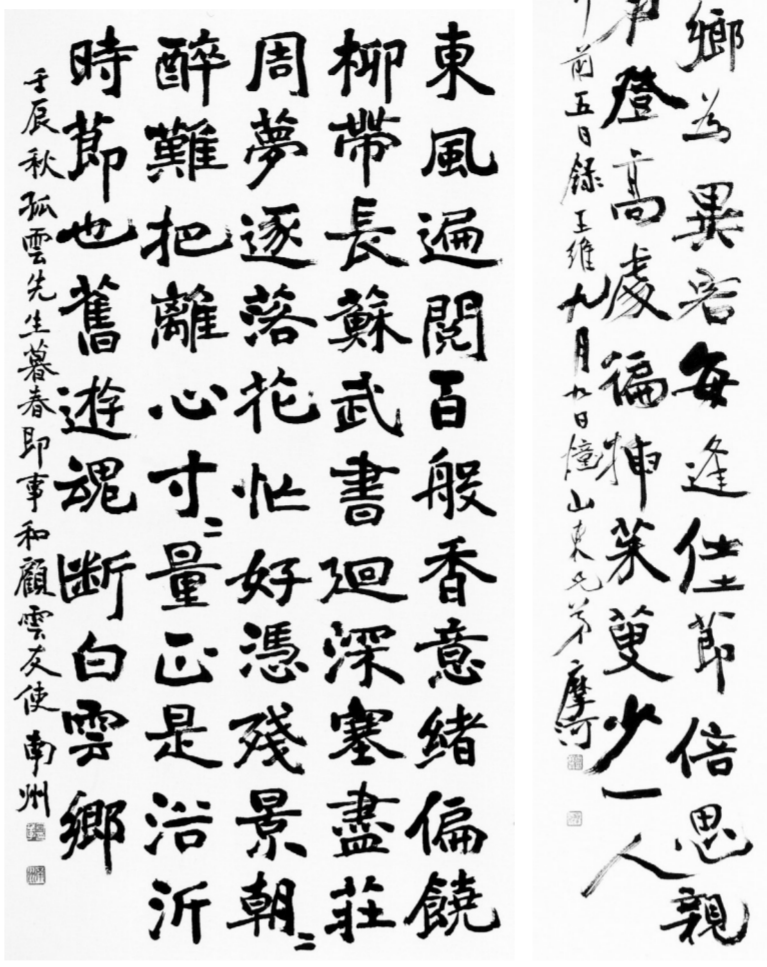 鄉為異客每逢佳節倍思親
登高處徧揷茱萸少一人
前五日錄王維九月九日憶山東兄弟 摩河
東風遍閱百般香意緒偏饒
柳帶長蘇武書廻深塞盡莊
周夢逐落花忙好憑殘景朝〻
醉難把離心寸〻量正是浴沂
時節也舊遊魂斷白雲鄉
壬辰秋孤雲先生暮春即事和顧雲友使 南州